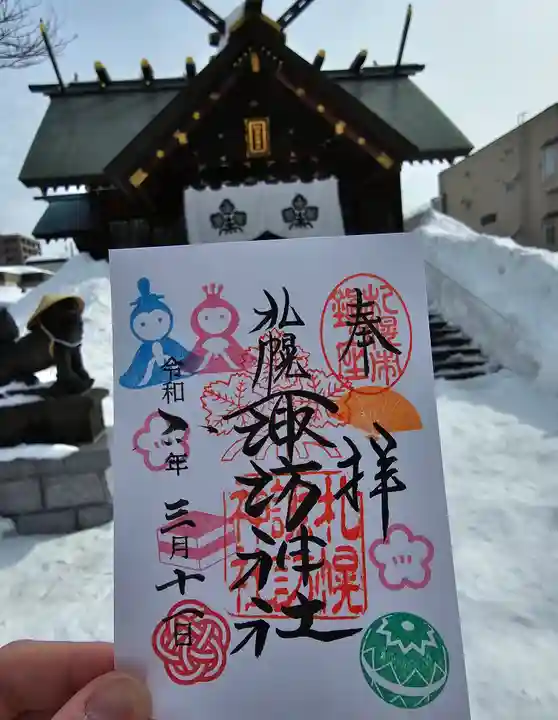 奉拝
札幌市鎮座
札幌諏訪神社
札幌諏訪神社
令和八年三月十一日